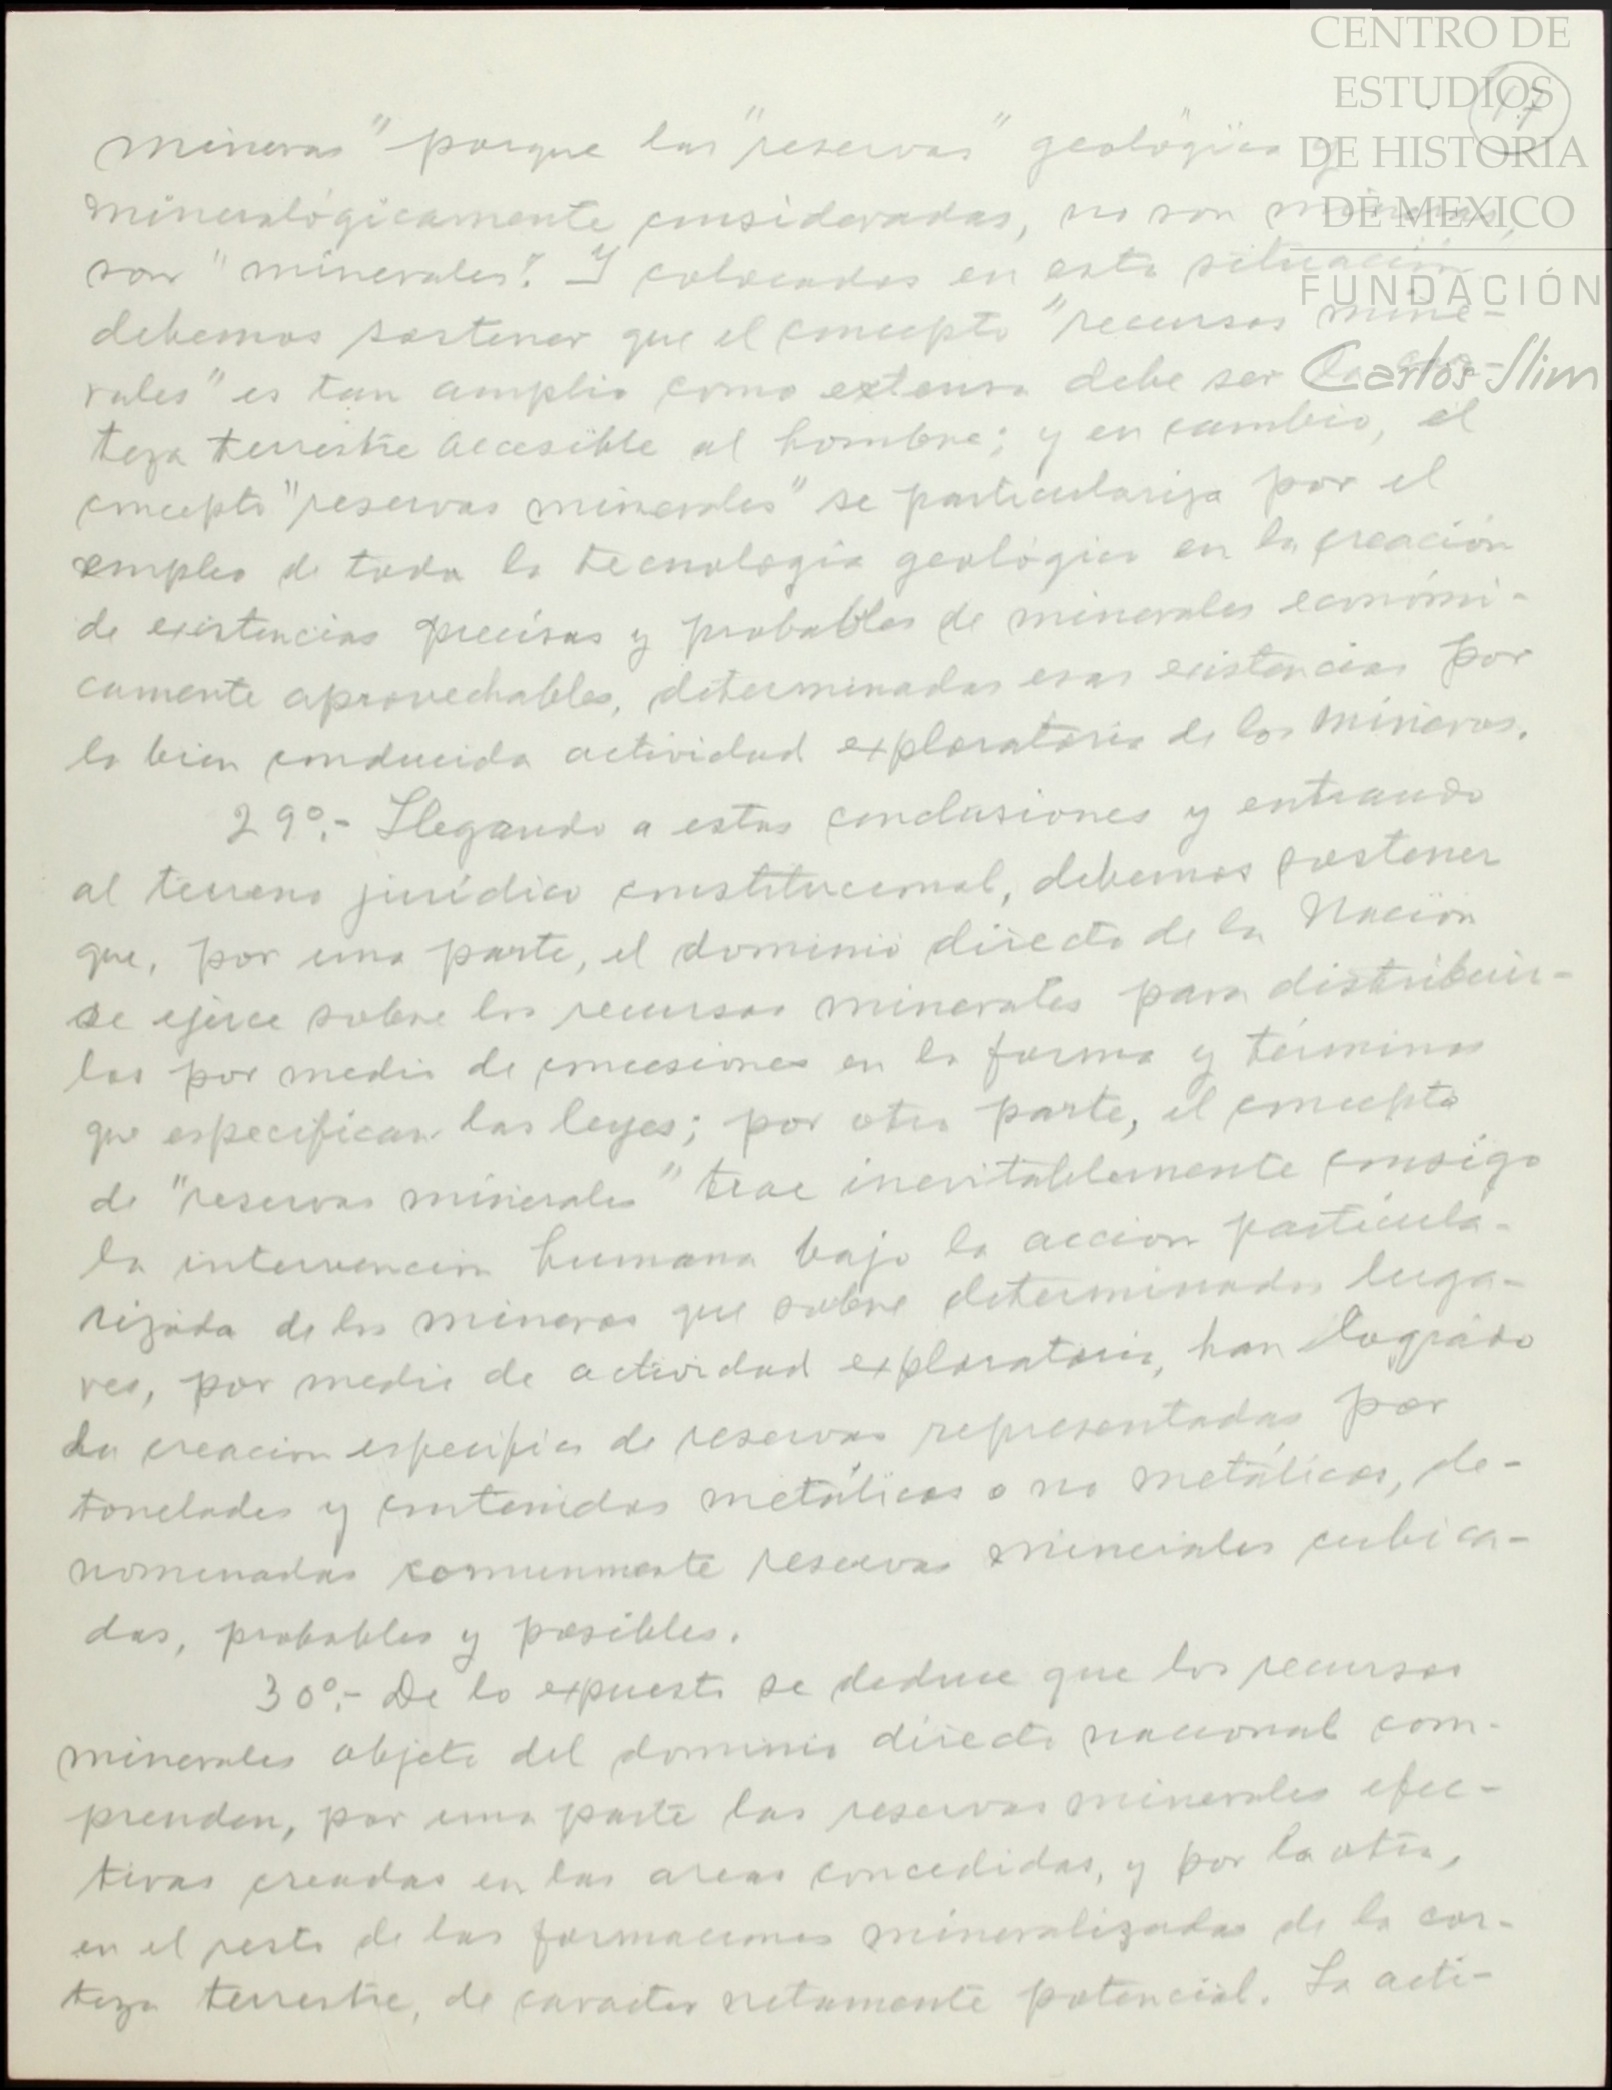 CENTRO DE
ESTUDIOS
DE HISTORIA
DE MEXICO
FUNDACIÓN
Carlos Slim
17
mineras" porque las "reservas" geológica y
mineralógicamente consideradas, no son mineras,
son "minerales". Y colocados en esta situación
debemos sostener que el concepto "recursos mine-
rales" es tan amplio como extensa debe ser la cor-
teza terrestre accesible al hombre; y en cambio, el
concepto "reservas minerales" se particulariza por el
empleo de toda la tecnología geológica en la creación
de existencias precisas y probables de minerales económi-
camente aprovechables, determinadas esas existencias por
la bien conducida actividad exploratoria de los mineros.
29º.- Llegando a estas conclusiones y entrando
al terreno jurídico constitucional, debemos sostener
que, por una parte, el dominio directo de la Nación
se ejerce sobre los recursos minerales para distribuir-
los por medio de concesiones en la forma y términos
que especifican las leyes; por otra parte, el concepto
de "reservas minerales" trae inevitablemente consigo
la intervención humana bajo la acción particula-
rizada de los mineros que sobre determinados luga-
res, por medio de actividad exploratoria, han logrado
la creación específica de reservas representadas por
toneladas y contenidos metálicos o no metálicos, de-
nominadas comunmente reservas minerales cubica-
das, probables y posibles.
30º.- De lo expuesto se deduce que los recursos
minerales objeto del dominio directo nacional com-
prenden, por una parte las reservas minerales efec-
tivas creadas en las areas concedidas, y por la otra,
en el resto de las formaciones mineralizadas de la cor-
teza terrestre, de caracter netamente potencial. La acti-